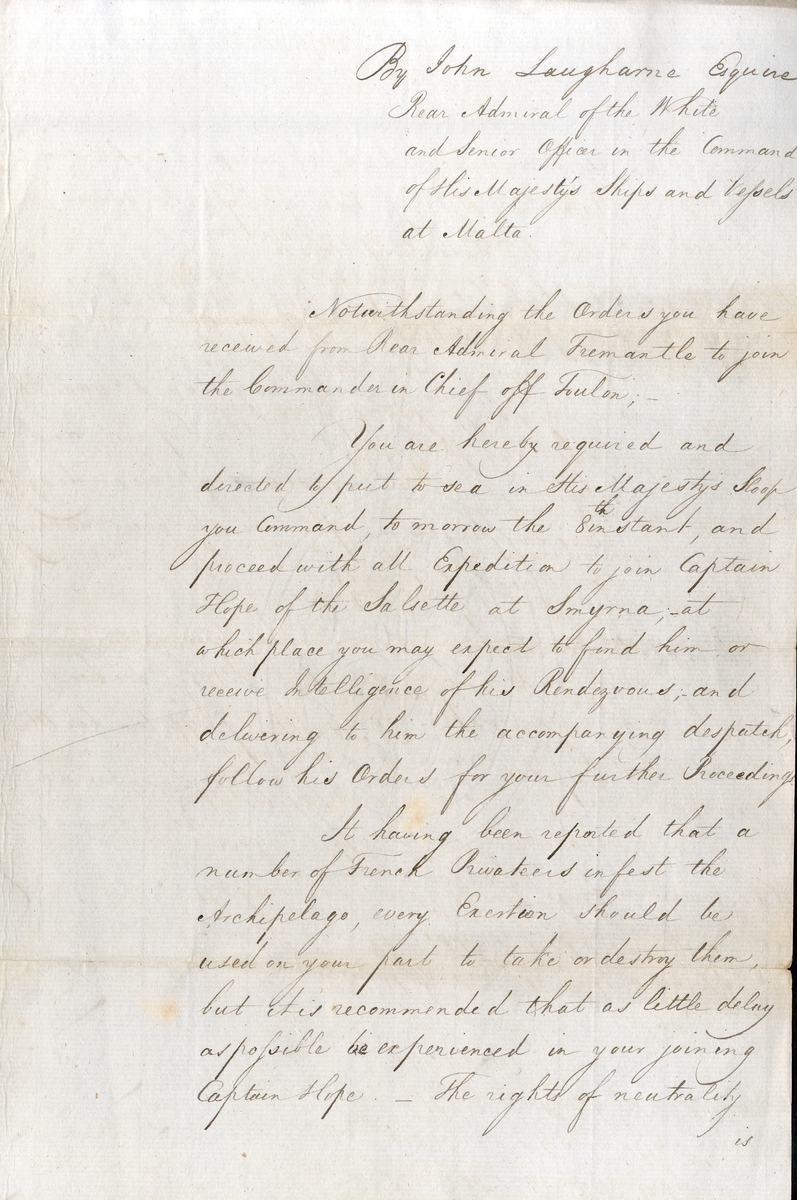 By John Laugharne Esquire
Rear Admiral of the White
and Senior Officer in the Command
of His Majesty's Ships and Vessels
at Malta.
Notwithstanding the Orders you have
received from Rear Admiral Fremantle to join
the Commander in Chief off Toulon; –
You are hereby required and
directed to put to sea in His Majesty's Sloop
you Command, to morrow the 8th instant, and
proceed with all Expedition to join Captain
Hope of the Salsette at Smyrna; – at
which place you may expect to find him or
receive Intelligence of his Rendezvous; – and
delivering to him the accompanying despatch,
follow his Orders for your further Proceedings
It having been reported that a
number of French Privateers infest the
Archipelago, every Exertion should be
used on your part to take or destroy them,
but it is recommended that as little delay
as possible be experienced in your joining
Captain Hope. – The rights of neutrality
is